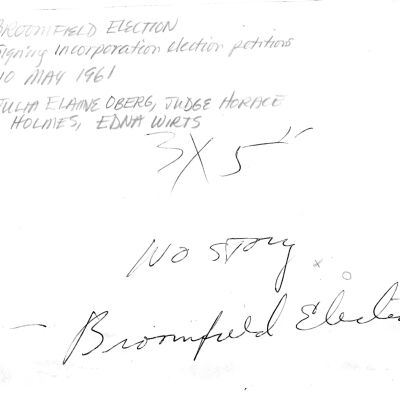 BROOMFIELD ELECTION
signing incorporation election petitions
10 MAY 1961
JULIA ELAINE OBERG, JUDGE HORACE
HOLMES, EDNA WIRTS
3X5"
No story
x o
— Broomfield Elect